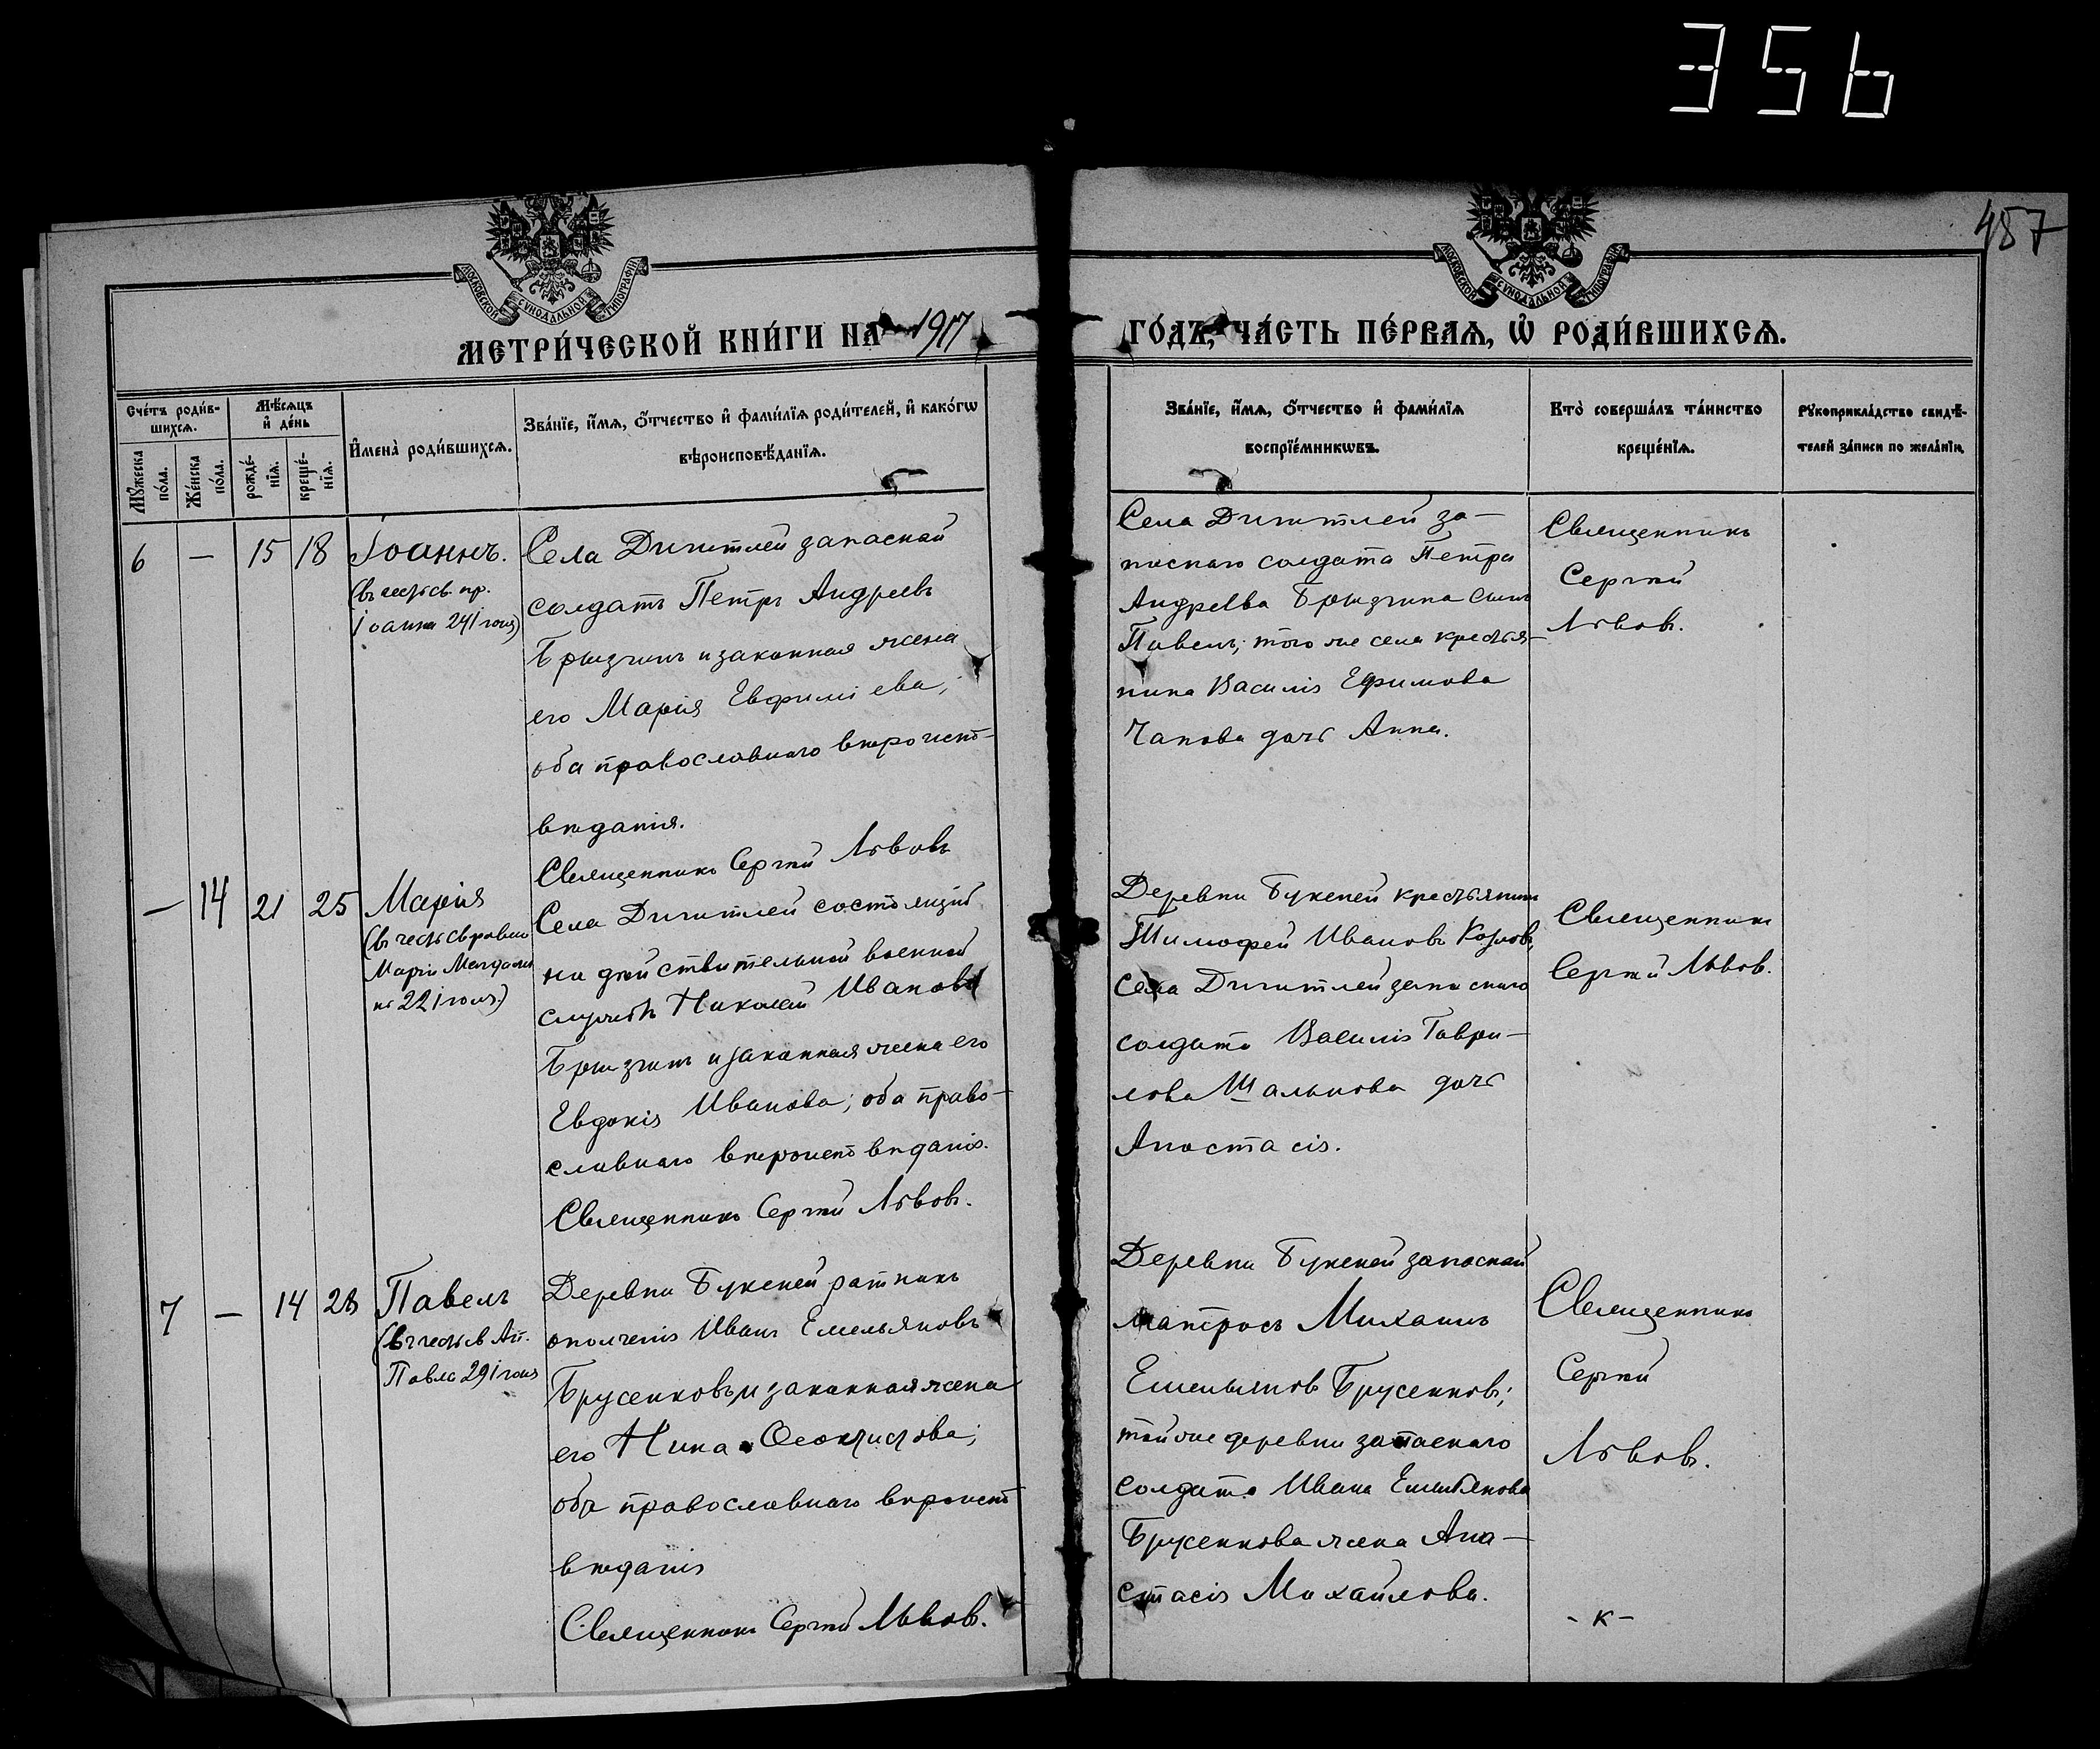 356
457
МОСКОВСКОЙ СѴНОДАЛЬНОЙ ТИПОГРАФІИ
МОСКОВСКОЙ СѴНОДАЛЬНОЙ ТИПОГРАФІИ
МЕТРИ́ЧЕСКОЙ КНИ́ГИ НА 1917
ГО́ДЪ, ЧА́СТЬ ПЕ́РВАЯ, Ѡ РОДИ́ВШИХСЯ.
Сче́тъ роди́в-
шихся.
Мѣ́сяцъ
и де́нь
Имена̀ роди́вшихся.
Зва́нїе, и́мя, о́тчество и фами́лїя роди́телей, и како́гѡ
вѣроисповѣ́данїя.
Му́жеска
по́ла.
Же́нска
по́ла.
рожде́-
нїя.
креще́-
нїя.
Зва́нїе, и́мя, о́тчество и фами́лїя
воспрїе́мникѡвъ.
Кто̀ соверша́лъ та́инство
креще́нїя.
Рукоприкла́дство свидѣ́-
телей за́писи по жела́нїю.
6 — 15 18 Іоаннъ.
(въ честь св. пр.
Іоанна 24 іюня)
Села Дигитлей запасной
солдатъ Петръ Андреевъ
Брызгинъ и законная жена
его Марія Евфиміева;
оба православнаго вѣроиспо-
вѣданія.
Священникъ Сергѣй Львовъ
Села Дигитлей за-
паснаго солдата Петра
Андреева Брызгина сынъ
Павелъ; того же села крестья-
нина Василія Ефимова
Чапова дочь Анна.
Священникъ
Сергѣй
Львовъ.
— 14 21 25 Марія
(въ честь св равно
Маріи Магдали
ны 22 іюля.)
Села Дигитлей состоящій
на дѣйствительной военной
службѣ Николай Ивановъ
Брызгинъ и законная жена его
Евдокія Иванова; оба право-
славнаго вѣроисповѣданія.
Священникъ Сергѣй Львовъ.
Деревни Букеней крестьянинъ
Тимофей Ивановъ Козловъ,
села Дигитлей запаснаго
солдата Василія Гаври-
лова Шалькова дочь
Анастасія.
Священникъ
Сергѣй Львовъ.
7 — 14 28 Павелъ
(въ честь св Ап.
Павла 29 іюня
Деревни Букеней ратникъ
ополченія Иванъ Емельяновъ
Брусенковъ, и законная жена
его Нина Ѳеоктистова;
оба православнаго вѣроиспо
вѣданія
Священникъ Сергѣй Львовъ.
Деревни Букеней запасной
матросъ Михаилъ
Емельяновъ Брусенковъ;
той же деревни запаснаго
солдата Ивана Емельянова
Брусенкова жена Ана-
стасія Михайлова.
Священникъ
Сергѣй
Львовъ.
- к -